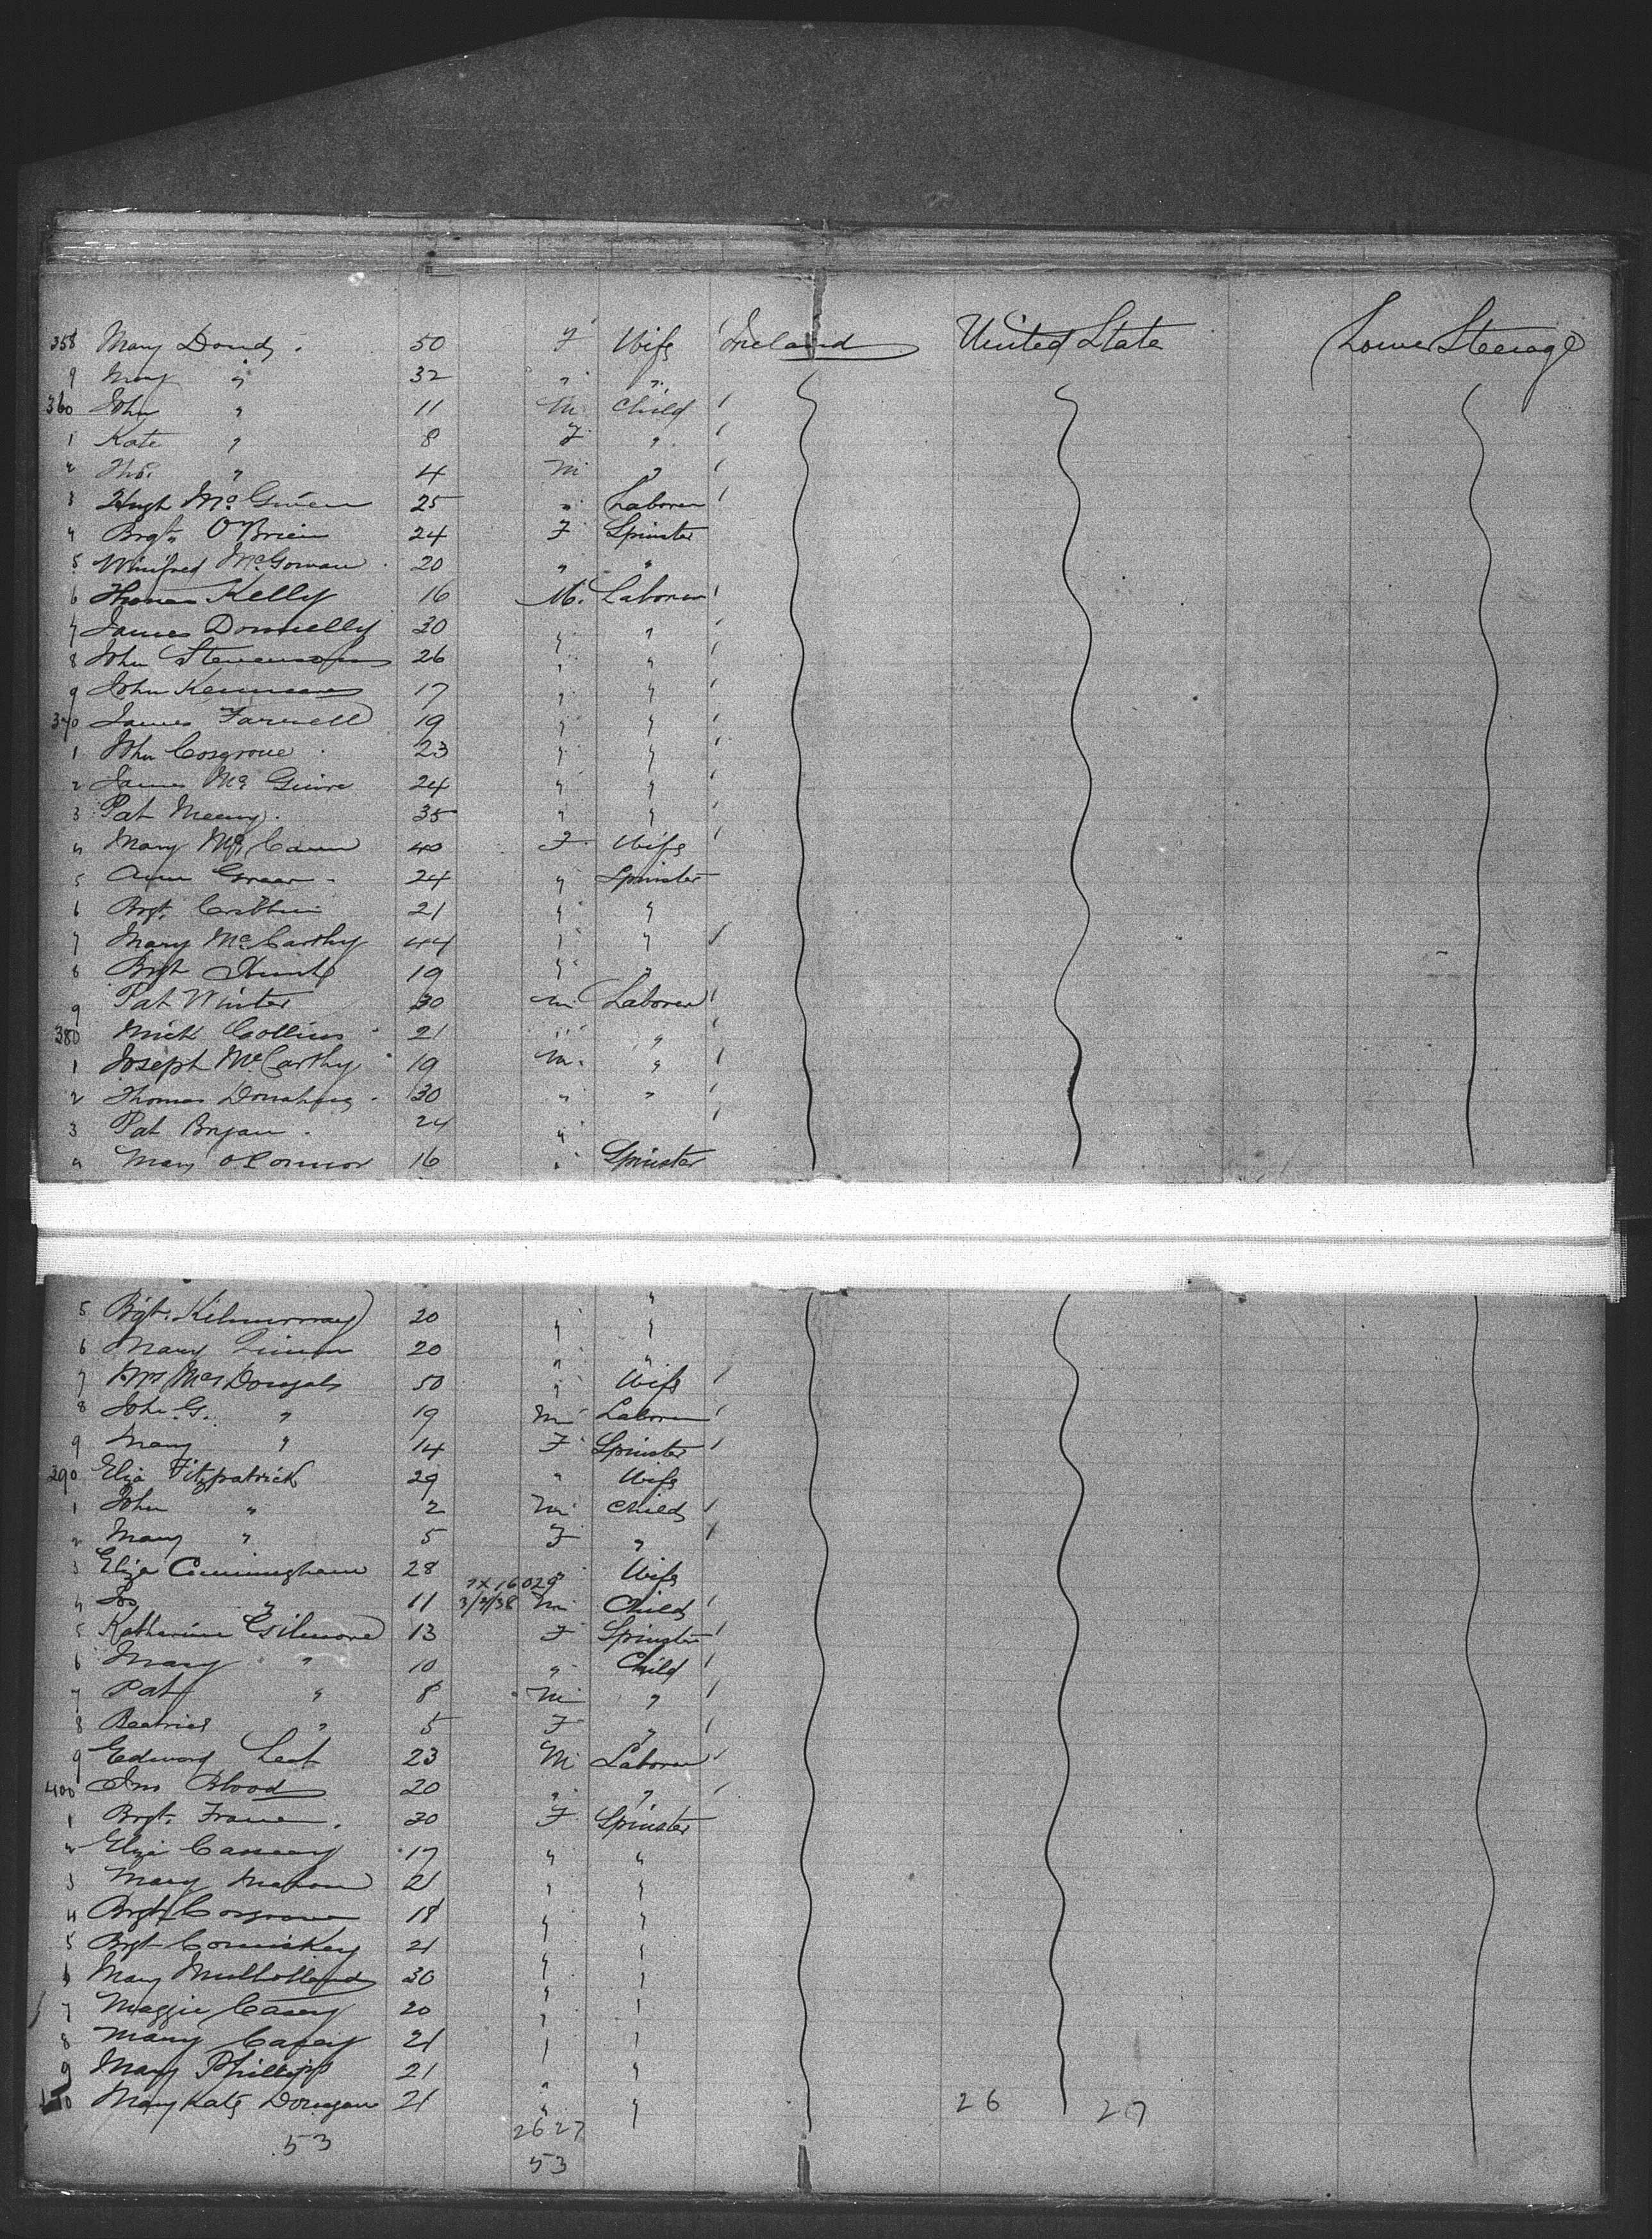 358 Mary Dowd 50 F Wife Ireland United State Lower Steerage
9 Mary " 32 " "
360 John " 11 M Child
1 Kate " 8 F "
2 Thos. " 4 M "
3 Hugh 25 " Laborer
4 Brgt. O'Brien 24 F Spinster
5 Winifred McGowan 20 " "
6 Thomas Kelly 16 M. Laborer
7 James Donnelly 30 " "
8 John Stevenson 26 " "
9 John 17 " "
370 James Farrell 19 " "
1 John Cosgrove 23 " "
2 James McGuire 24 " "
3 Pat 35 " "
4 Mary McCann 40 F Wife
5 Ann Greer 24 " Spinster
6 Brgt. 21 " "
7 Mary McCarthy 44 " "
8 Brgt 19 " "
9 Pat Winter 30 M Laborer
380 Mick Collins 21 " "
1 Joseph McCarthy 19 M. "
2 Thomas Donahue 30 " "
3 Pat Bryan 24 "
4 Mary O'Connor 16 " Spinster
5 Bgt. Kilmurray 20 " "
6 Mary 20 " "
7 Mrs 50 " Wife
8 John G. " 19 M Laborer
9 Mary " 14 F Spinster
390 Eliza Fitzpatrick 29 " Wife
1 John " 2 M Child
2 Mary " 5 F "
3 Eliza Cunningham 28 " Wife
7X16029
4 Jos " 11 3/3/38 M Child
5 Katherine Gilmore 13 F Spinster
6 Mary " 10 " Child
7 Pat " 8 M "
8 Beatrice " 5 F "
9 Edward 23 M Laborer
400 Jno Blood 20 " "
1 Brgt. 30 F Spinster
2 Eliza 17 " "
3 Mary Mahon 21 " "
4 Brgt Cosgrove 18 " "
5 Brgt Comiskey 21 " "
6 Mary Mulholland 30 " "
7 Maggie Casey 20 " "
8 Mary 21 " "
9 Mary Phillips 21 " "
Mary Kate Donegan 21 " "
26 27
53 26 27
53